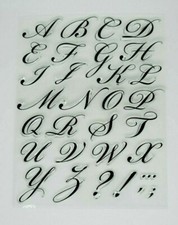 A B C D
E F G H
I J K L
M N O P
Q R S T
U V W X
Y Z ? ! " ; ;